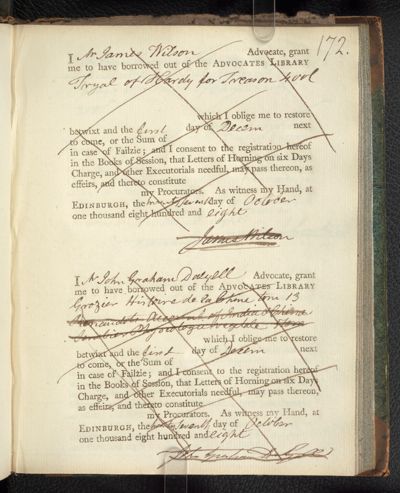 172.
I Mr James Wilson Advocate, grant
me to have borrowed out of the ADVOCATES LIBRARY
Tryal of Hardy for Treason 4 vol
which I oblige me to restore
betwixt and the first day of Decem next
to come, or the Sum of
in case of Failzie; and I consent to the registration hereof
in the Books of Session, that Letters of Horning on six Days
Charge, and other Executorials needful, may pass thereon, as
effeirs, and thereto constitute
my Procurators. As witness my Hand, at
EDINBURGH, the day of October
one thousand eight hundred and eight
James Wilson
I Mr John Graham Dalyell Advocate, grant
me to have borrowed out of the ADVOCATES LIBRARY
Grozier Histoire de la Chine tom 13
which I oblige me to restore
betwixt and the first day of Decem next
to come, or the Sum of
in case of Failzie; and I consent to the registration hereof
in the Books of Session, that Letters of Horning on six Days
Charge, and other Executorials needful, may pass thereon,
as effeirs, and thereto constitute
my Procurators. As witness my Hand, at
EDINBURGH, the day of October
one thousand eight hundred and eight
John Graham Dalyell